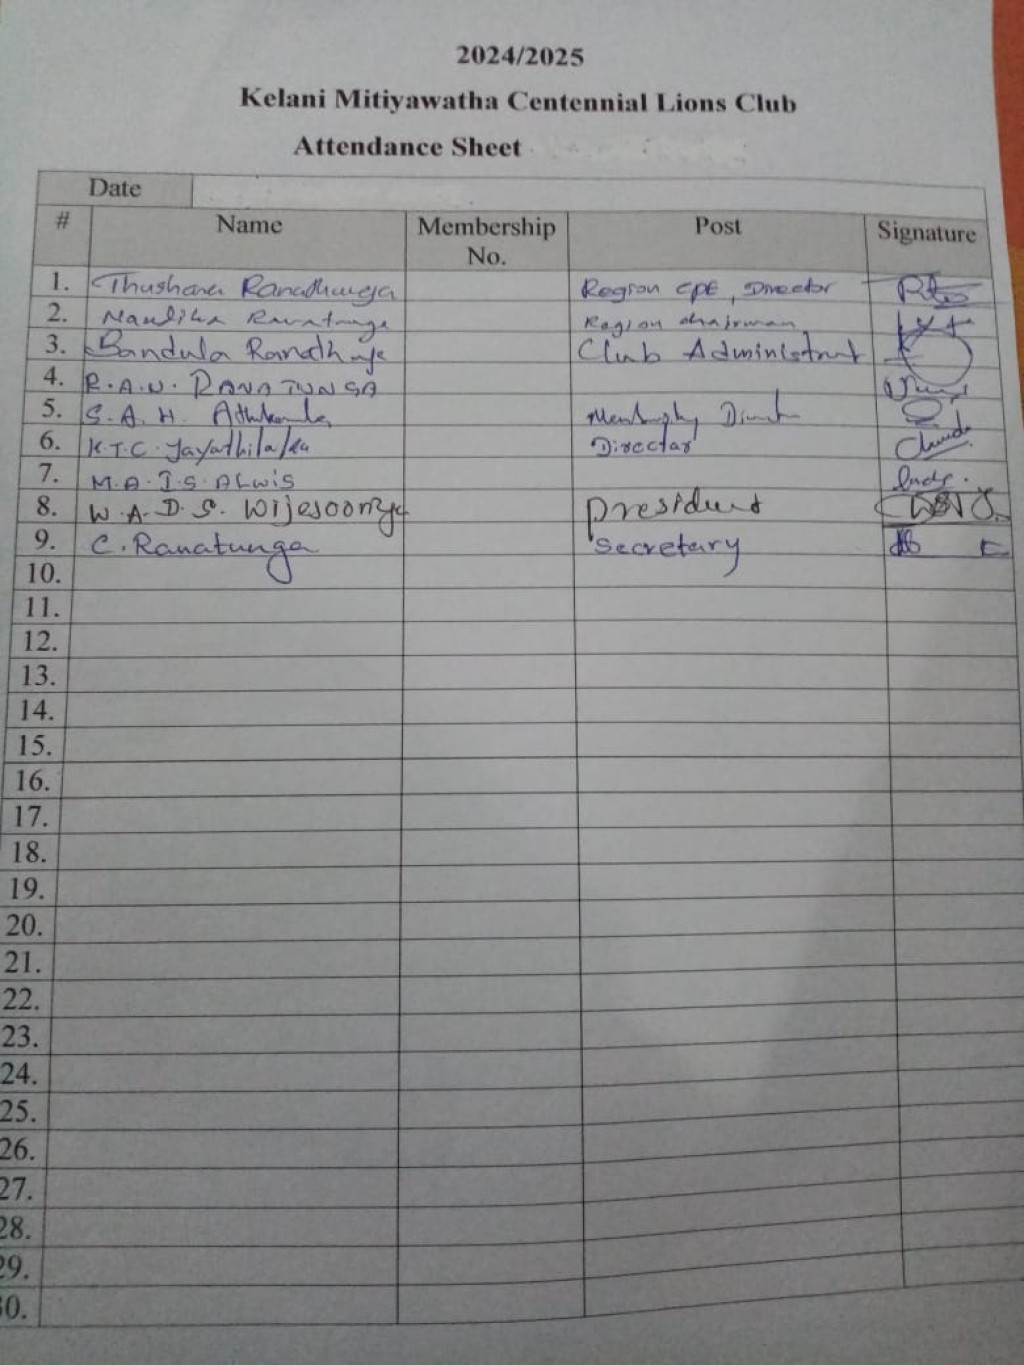 2024/2025
Kelani Mitiyawatha Centennial Lions Club
Attendance Sheet
Date
# Name Membership No. Post Signature
1. Thushara Ranadhunga Region CPE, Director
2. Nandika Ranatunga Region chairman
3. Bandula Ranath Club Administrat
4. R.A.N. RANATUNGA
5. S.A.H. Membership Director
6. K.T.C. Jayathilaka Director
7. M.A.I.S. ALWIS
8. W.A.D.S. Wijesooriya president
9. C. Ranatunga Secretary
10.
11.
12.
13.
14.
15.
16.
17.
18.
19.
20.
21.
22.
23.
24.
25.
26.
27.
28.
29.
30.